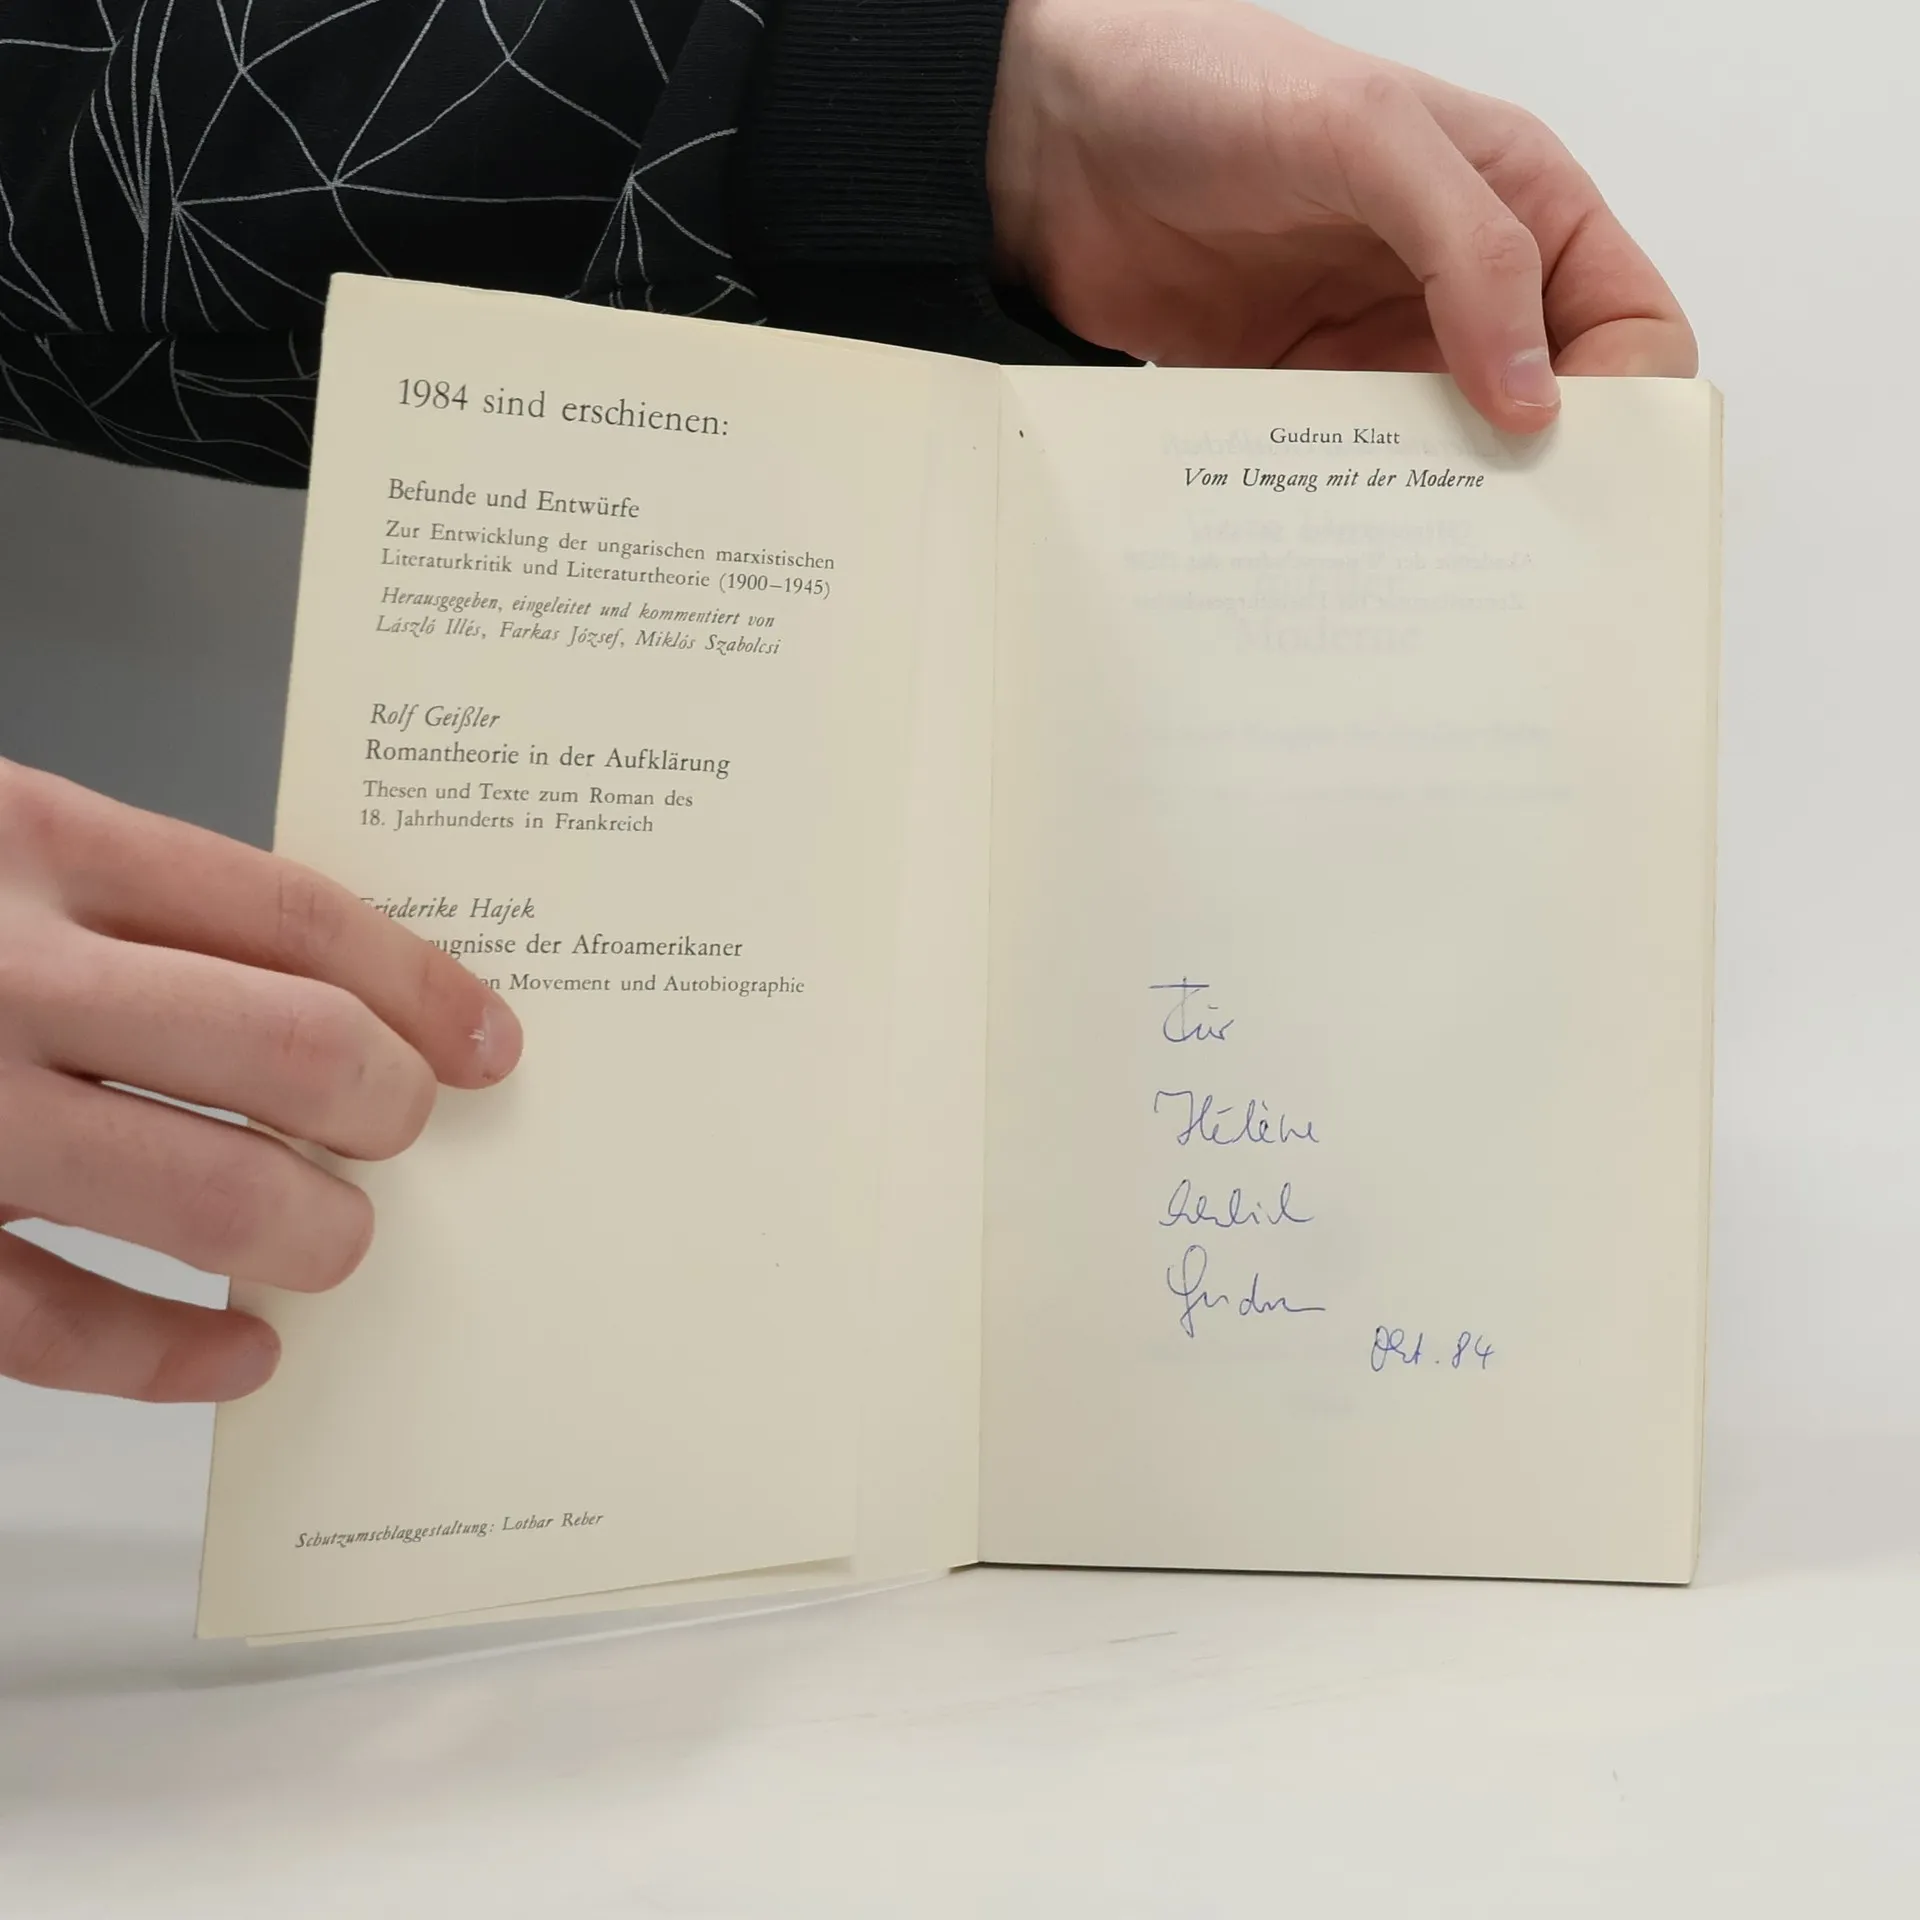 1984 sind erschienen:
Befunde und Entwürfe
Zur Entwicklung der ungarischen marxistischen
Literaturkritik und Literaturtheorie (1900–1945)
Herausgegeben, eingeleitet und kommentiert von
László Illés, Farkas József, Miklós Szabolcsi
Rolf Geißler
Romantheorie in der Aufklärung
Thesen und Texte zum Roman des
18. Jahrhunderts in Frankreich
Friederike Hajek
der Afroamerikaner
Movement und Autobiographie
Schutzumschlaggestaltung: Lothar Reber
Gudrun Klatt
Vom Umgang mit der Moderne
Für
Hélène
herzlich
Gudrun
Okt. 84